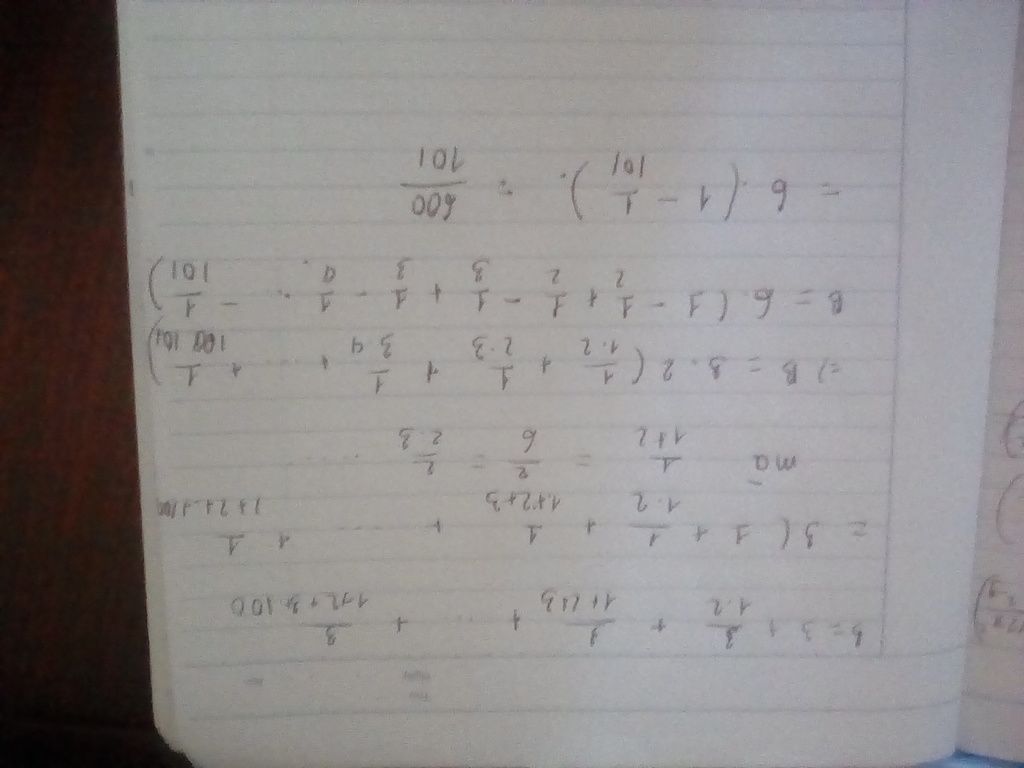 B = 3 + 3/1·2 + 3/1+2+3 + ... + 3/1+2+3+100
= 3 ( 1 + 1/1·2 + 1/1+2+3 + ... + 1/1+2+..+100
mà 1/1+2 = 2/6 = 2/2·3 ...
=> B = 3·2 ( 1/1·2 + 1/2·3 + 1/3·4 + ... + 1/100·101 )
B = 6 ( 1 - 1/2 + 1/2 - 1/3 + 1/3 - 1/4 ... - 1/101 )
= 6 · ( 1 - 1/101 ) . = 600/101